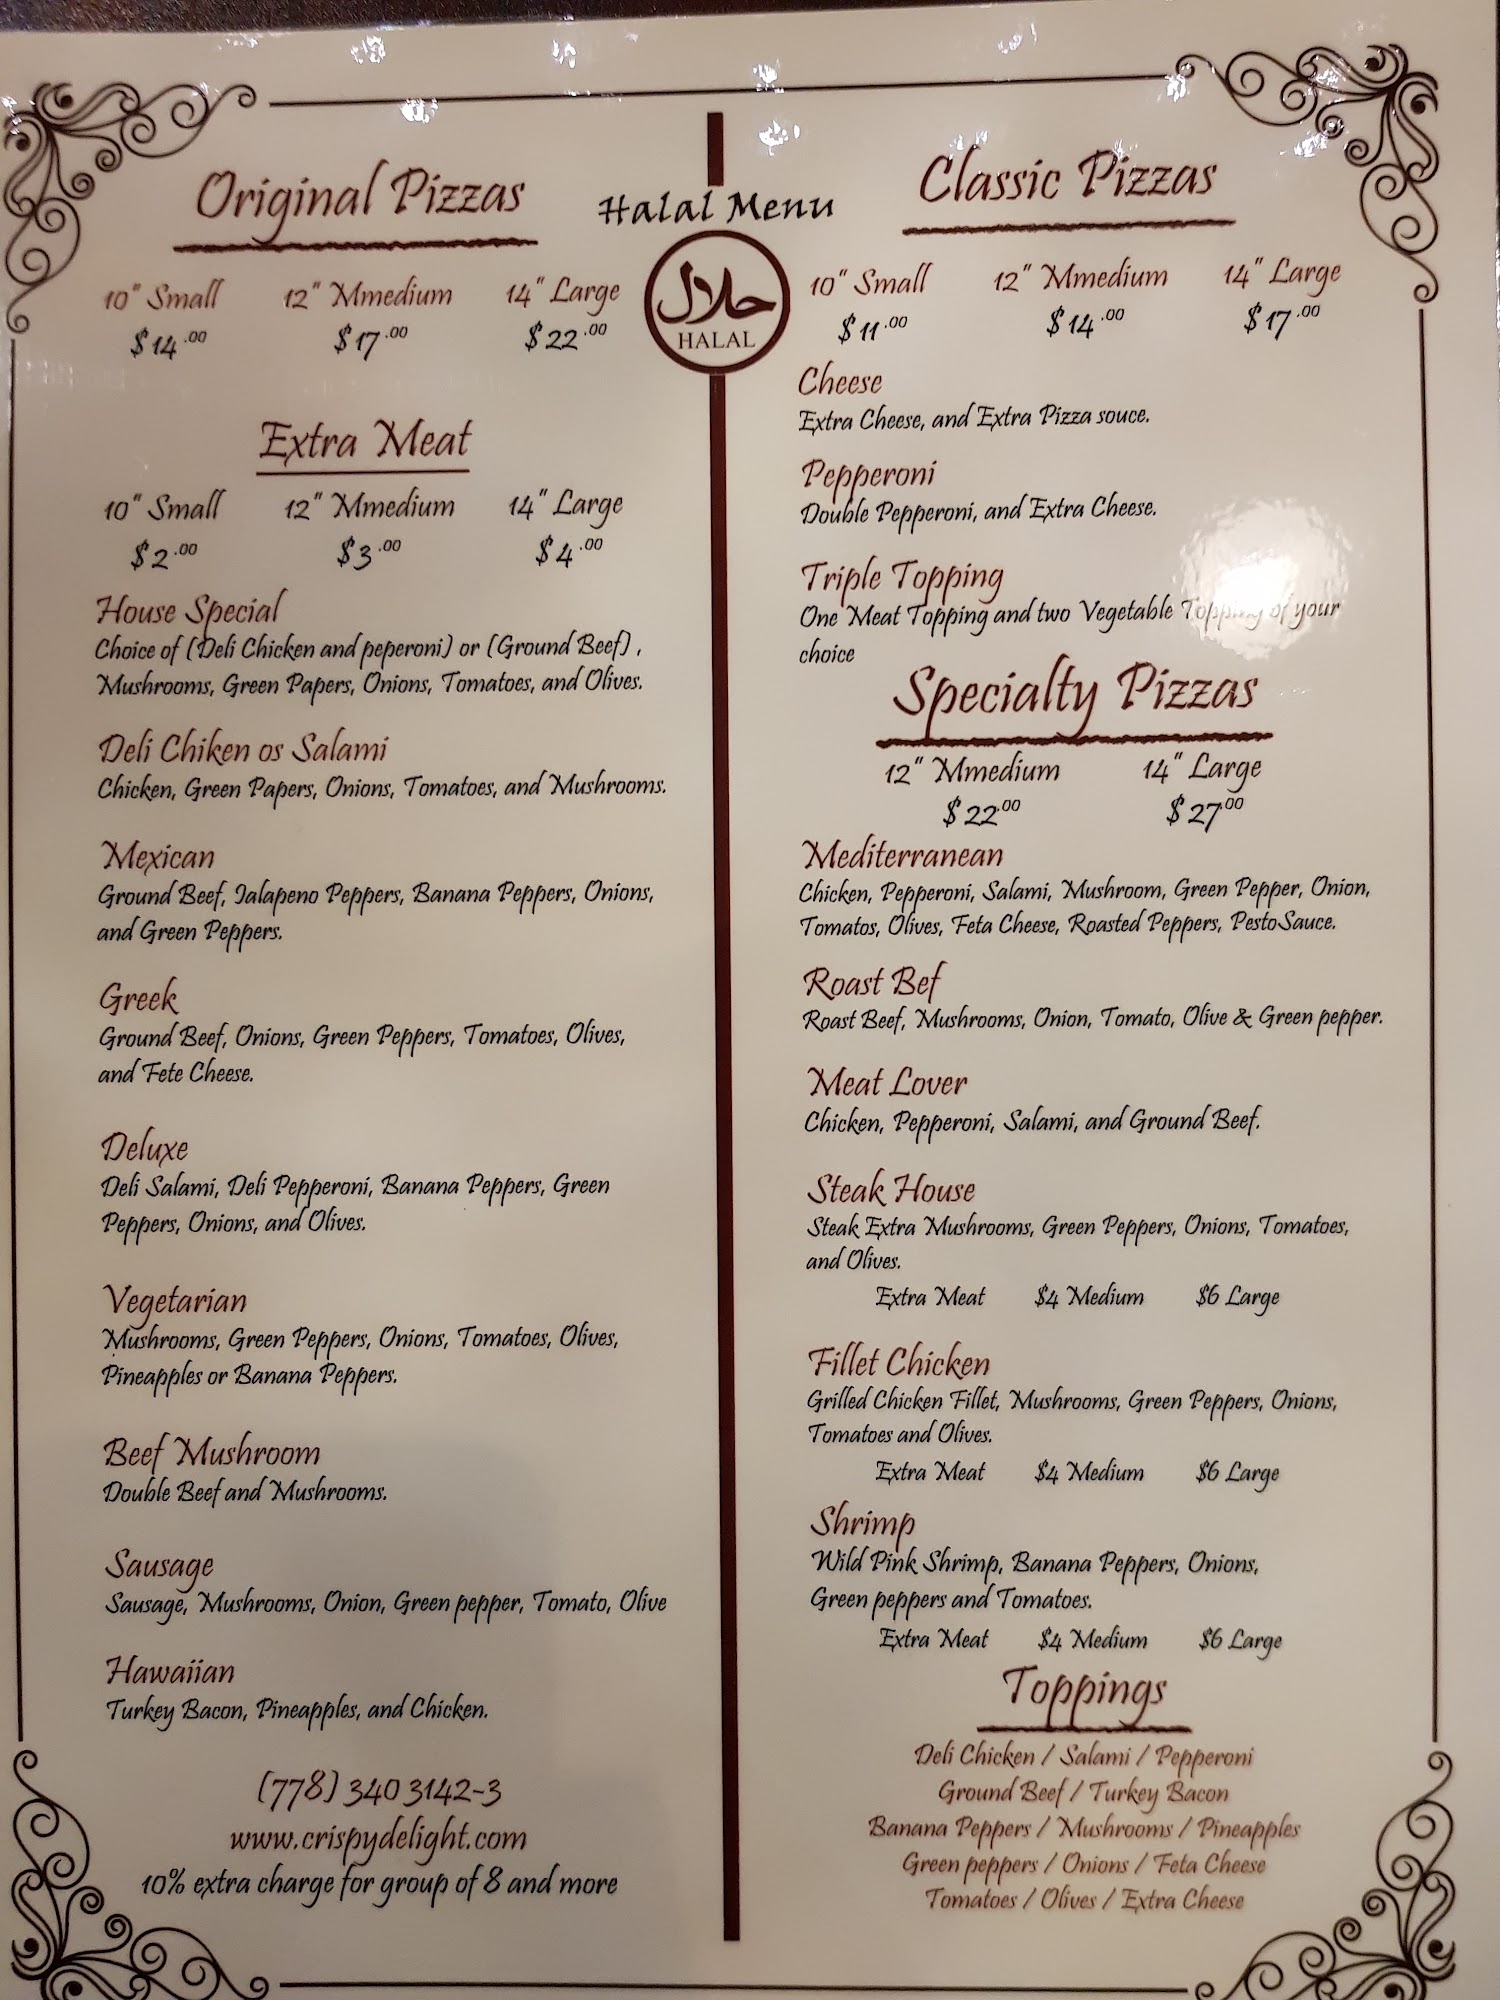 Halal Menu
حلال
HALAL
Original Pizzas
10" Small 12" Mmedium 14" Large
$14.00 $17.00 $22.00
Extra Meat
10" Small 12" Mmedium 14" Large
$2.00 $3.00 $4.00
House Special
Choice of (Deli Chicken and peperoni) or (Ground Beef),
Mushrooms, Green Papers, Onions, Tomatoes, and Olives.
Deli Chiken os Salami
Chicken, Green Papers, Onions, Tomatoes, and Mushrooms.
Mexican
Ground Beef, Jalapeno Peppers, Banana Peppers, Onions,
and Green Peppers.
Greek
Ground Beef, Onions, Green Peppers, Tomatoes, Olives,
and Fete Cheese.
Deluxe
Deli Salami, Deli Pepperoni, Banana Peppers, Green
Peppers, Onions, and Olives.
Vegetarian
Mushrooms, Green Peppers, Onions, Tomatoes, Olives,
Pineapples or Banana Peppers.
Beef Mushroom
Double Beef and Mushrooms.
Sausage
Sausage, Mushrooms, Onion, Green pepper, Tomato, Olive
Hawaiian
Turkey Bacon, Pineapples, and Chicken.
(778) 340 3142-3
www.crispydelight.com
10% extra charge for group of 8 and more
Classic Pizzas
10" Small 12" Mmedium 14" Large
$11.00 $14.00 $17.00
Cheese
Extra Cheese, and Extra Pizza souce.
Pepperoni
Double Pepperoni, and Extra Cheese.
Triple Topping
One Meat Topping and two Vegetable Topping of your
choice
Specialty Pizzas
12" Mmedium 14" Large
$22.00 $27.00
Mediterranean
Chicken, Pepperoni, Salami, Mushroom, Green Pepper, Onion,
Tomatos, Olives, Feta Cheese, Roasted Peppers, Pesto Sauce.
Roast Bef
Roast Beef, Mushrooms, Onion, Tomato, Olive & Green pepper.
Meat Lover
Chicken, Pepperoni, Salami, and Ground Beef.
Steak House
Steak Extra Mushrooms, Green Peppers, Onions, Tomatoes,
and Olives.
Extra Meat $4 Medium $6 Large
Fillet Chicken
Grilled Chicken Fillet, Mushrooms, Green Peppers, Onions,
Tomatoes and Olives.
Extra Meat $4 Medium $6 Large
Shrimp
Wild Pink Shrimp, Banana Peppers, Onions,
Green peppers and Tomatoes.
Extra Meat $4 Medium $6 Large
Toppings
Deli Chicken / Salami / Pepperoni
Ground Beef / Turkey Bacon
Banana Peppers / Mushrooms / Pineapples
Green peppers / Onions / Feta Cheese
Tomatoes / Olives / Extra Cheese